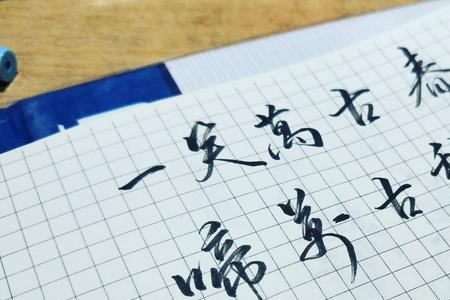 一笑萬古春
啼萬古